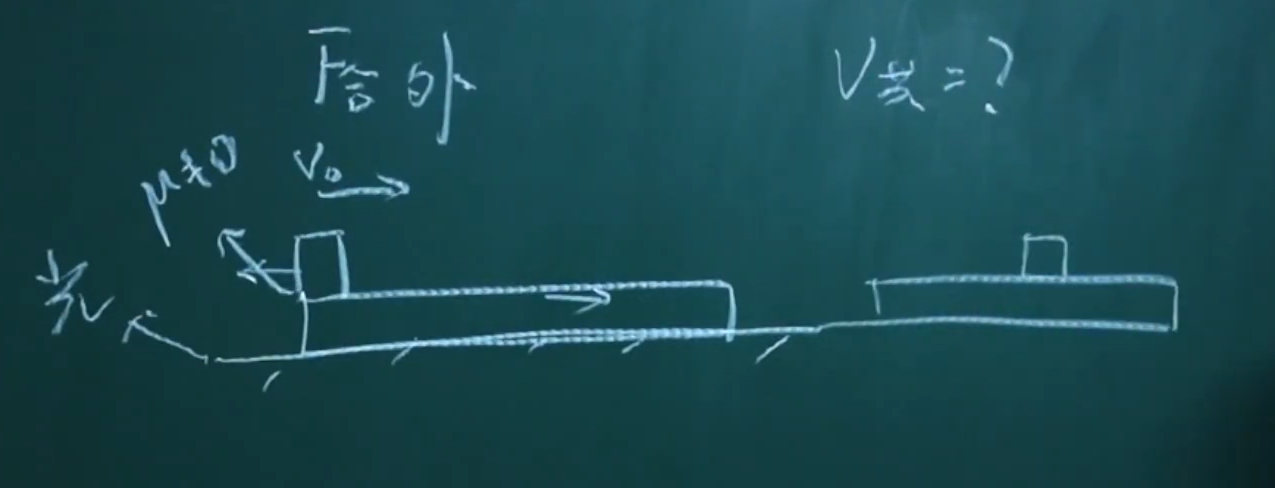 F合外 V共=?
μ≠0 V₀
光